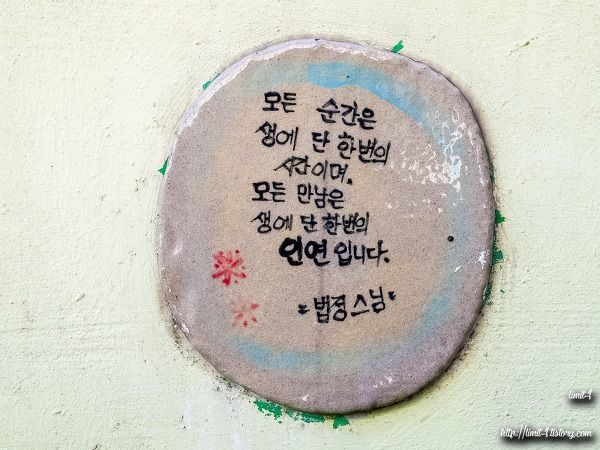 모든 순간은
생에 단 한번의
시간이며,
모든 만남은
생에 단 한번의
인연입니다.
"법정스님"
limit-4
http://limit-4.tistory.com